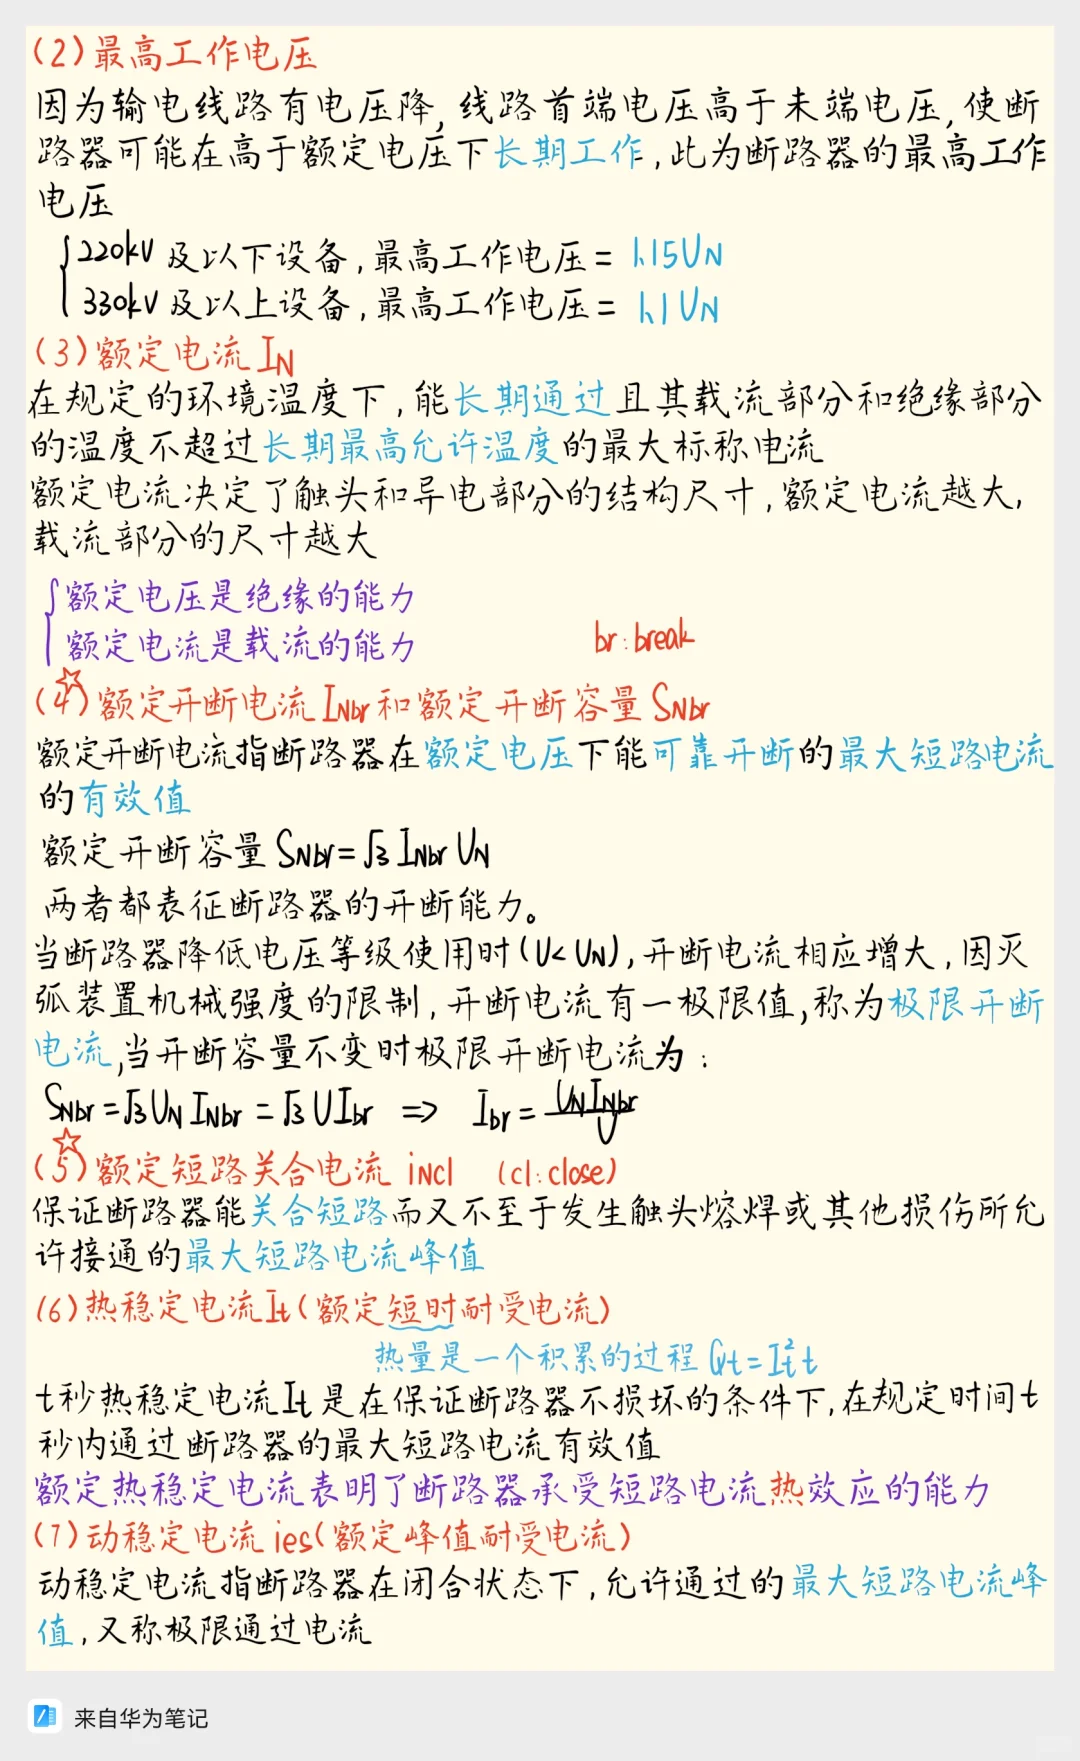 (2)最高工作电压
因为输电线路有电压降,线路首端电压高于末端电压,使断
路器可能在高于额定电压下长期工作,此为断路器的最高工作
电压
220kV及以下设备,最高工作电压=1.15UN
330kV及以上设备,最高工作电压=1.1UN
(3)额定电流IN
在规定的环境温度下,能长期通过且其载流部分和绝缘部分
的温度不超过长期最高允许温度的最大标称电流
额定电流决定了触头和导电部分的结构尺寸,额定电流越大,
载流部分的尺寸越大
额定电压是绝缘的能力
额定电流是载流的能力
br:break
(4)额定开断电流INbr和额定开断容量SNbr
额定开断电流指断路器在额定电压下能可靠开断的最大短路电流
的有效值
额定开断容量SNbr=√3 INbr UN
两者都表征断路器的开断能力。
当断路器降低电压等级使用时(U<UN),开断电流相应增大,因灭
弧装置机械强度的限制,开断电流有一极限值,称为极限开断
电流,当开断容量不变时极限开断电流为:
SNbr=√3 UN INbr=√3 U Ibr ⇒ Ibr=UN INbr/U
(5)额定短路关合电流 iNcl (cl:close)
保证断路器能关合短路而又不至于发生触头熔焊或其他损伤所允
许接通的最大短路电流峰值
(6)热稳定电流It(额定短时耐受电流)
热量是一个积累的过程 Qt=It²t
t秒热稳定电流It是在保证断路器不损坏的条件下,在规定时间t
秒内通过断路器的最大短路电流有效值
额定热稳定电流表明了断路器承受短路电流热效应的能力
(7)动稳定电流ies(额定峰值耐受电流)
动稳定电流指断路器在闭合状态下,允许通过的最大短路电流峰
值,又称极限通过电流
来自华为笔记